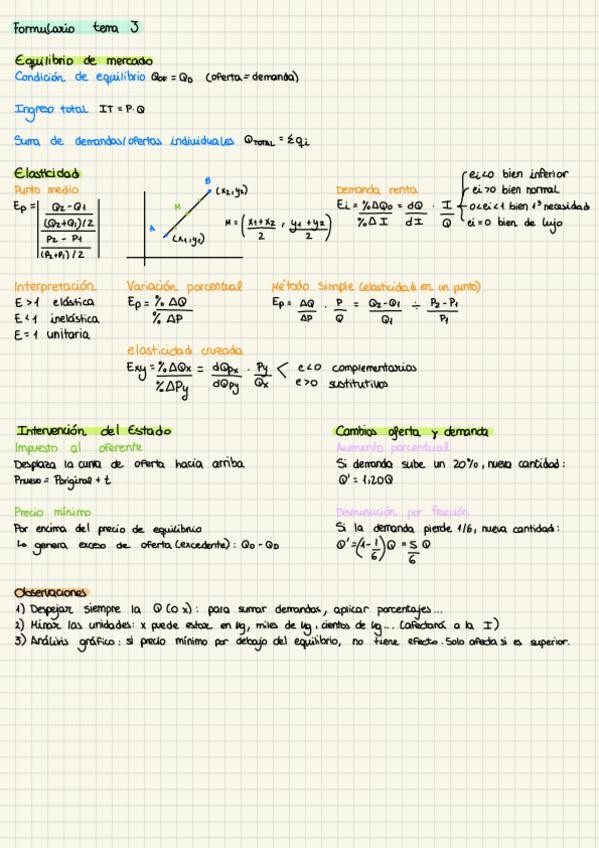 Formulario tema 3
Equilibrio de mercado
Condición de equilibrio Qof = QD (oferta = demanda)
Ingreso total IT = P·Q
Suma de demandas/ofertas individuales QTOTAL = Σqi
Elasticidad
Punto medio
Ep = | ((Q2-Q1)/((Q2+Q1)/2)) / ((P2-P1)/((P2+P1)/2)) |
A (x1,y1)
M
B (x2,y2)
M = ( (x1+x2)/2 , (y1+y2)/2 )
Demanda renta
Ei = %ΔQD/%ΔI = dQ/dI · I/Q
ei<0 bien inferior
ei>0 bien normal
0<ei<1 bien 1ª necesidad
ei=0 bien de lujo
Interpretación
E > 1 elástica
E < 1 inelástica
E = 1 unitaria
Variación porcentual
Ep = % ΔQ / % ΔP
Método Simple (elasticidad en un punto)
Ep = ΔQ/ΔP · P/Q = (Q2-Q1)/Q1 ÷ (P2-P1)/P1
elasticidad cruzada
Exy = %ΔQx/%ΔPy = dQpx/dQpy · Py/Qx
e<0 complementarios
e>0 sustitutivos
Intervención del Estado
Impuesto al oferente
Desplaza la curva de oferta hacia arriba
Pnuevo = Poriginal + t
Precio mínimo
Por encima del precio de equilibrio
↳ genera exceso de oferta (excedente): QO - QD
Cambios oferta y demanda
Aumento porcentual
Si demanda sube un 20%, nueva cantidad:
Q' = 1,20Q
Disminución por fracción
Si la demanda pierde 1/6, nueva cantidad:
Q' = (1-1/6)Q = 5/6 Q
Observaciones
1) Despejar siempre la Q (o x): para sumar demandas, aplicar porcentajes...
2) Mirar las unidades: x puede estar en kg, miles de kg, cientos de kg... (afectará a la I)
3) Análisis gráfico: si precio mínimo por debajo del equilibrio, no tiene efecto. Solo afecta si es superior.